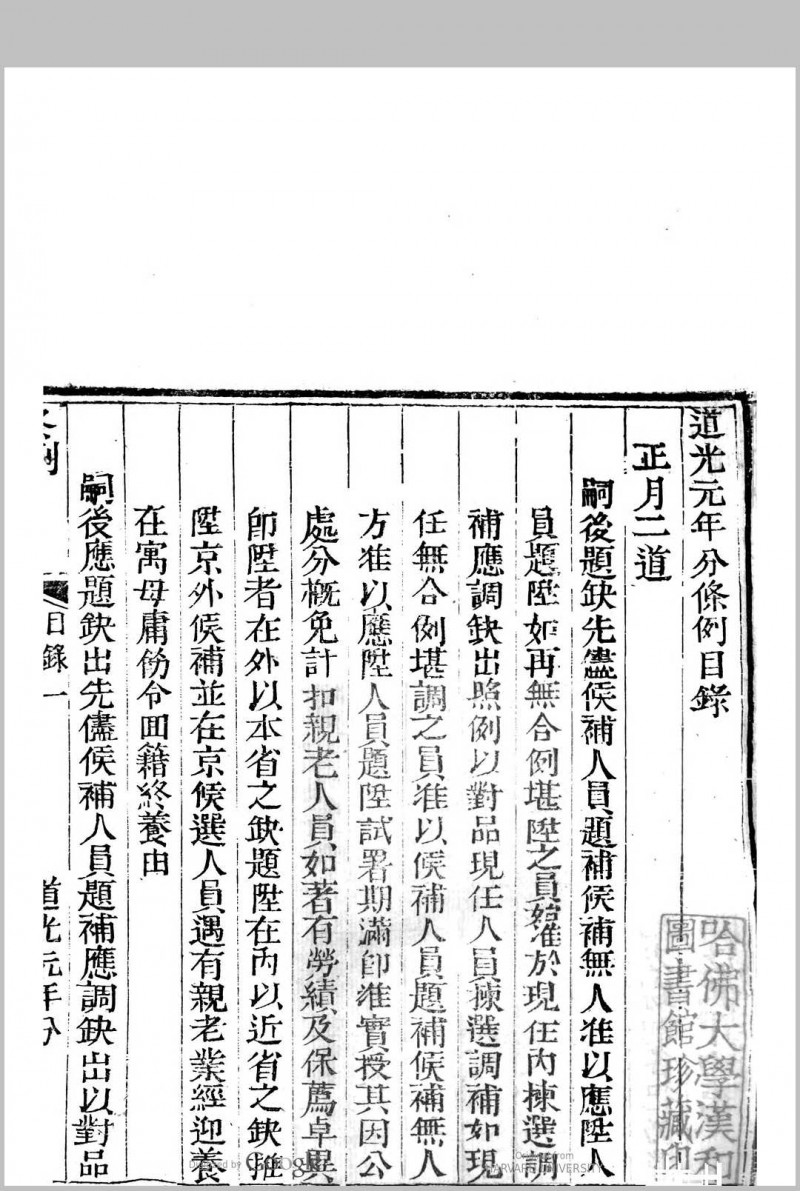 道光元年分條例目錄
正月二道
嗣後題缺先儘候補人員題補候補無人准以應陞人
員題陞如再無合例堪陞之員纔准於現任內揀選調
補應調缺出照例以對品現任人員揀選調補如現
任無合例堪調之員准以候補人員題補候補無人
方准以應陞人員題陞試署期滿卽准實授其因公
處分概免計扣親老人員如著有勞績及保薦卓異
卽陞者在外以本省之缺題陞在內以近省之缺推
陞京外候補並在京候選人員遇有親老業經迎養
在寓毋庸飭令囬籍終養由
嗣後應題缺出先儘候補人員題補應調缺出以對品
目錄一
道光元年分
哈佛大學漢和
圖書館珍藏印
Digitized by Google
Original from
HARVARD UNIVERSITY